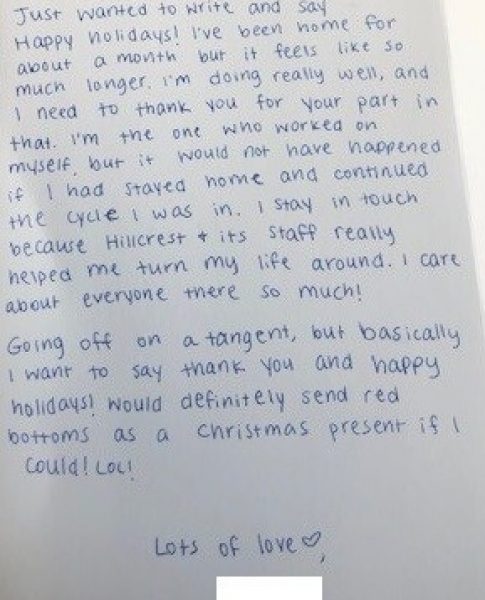 Just wanted to write and say
Happy holidays! I've been home for
about a month but it feels like so
much longer. I'm doing really well, and
I need to thank you for your part in
that. I'm the one who worked on
myself, but it would not have happened
if I had stayed home and continued
the cycle I was in. I stay in touch
because Hillcrest + its staff really
helped me turn my life around. I care
about everyone there so much!
Going off on a tangent, but basically
I want to say thank you and happy
holidays! Would definitely send red
bottoms as a Christmas present if I
could! LOL!
Lots of love♡,